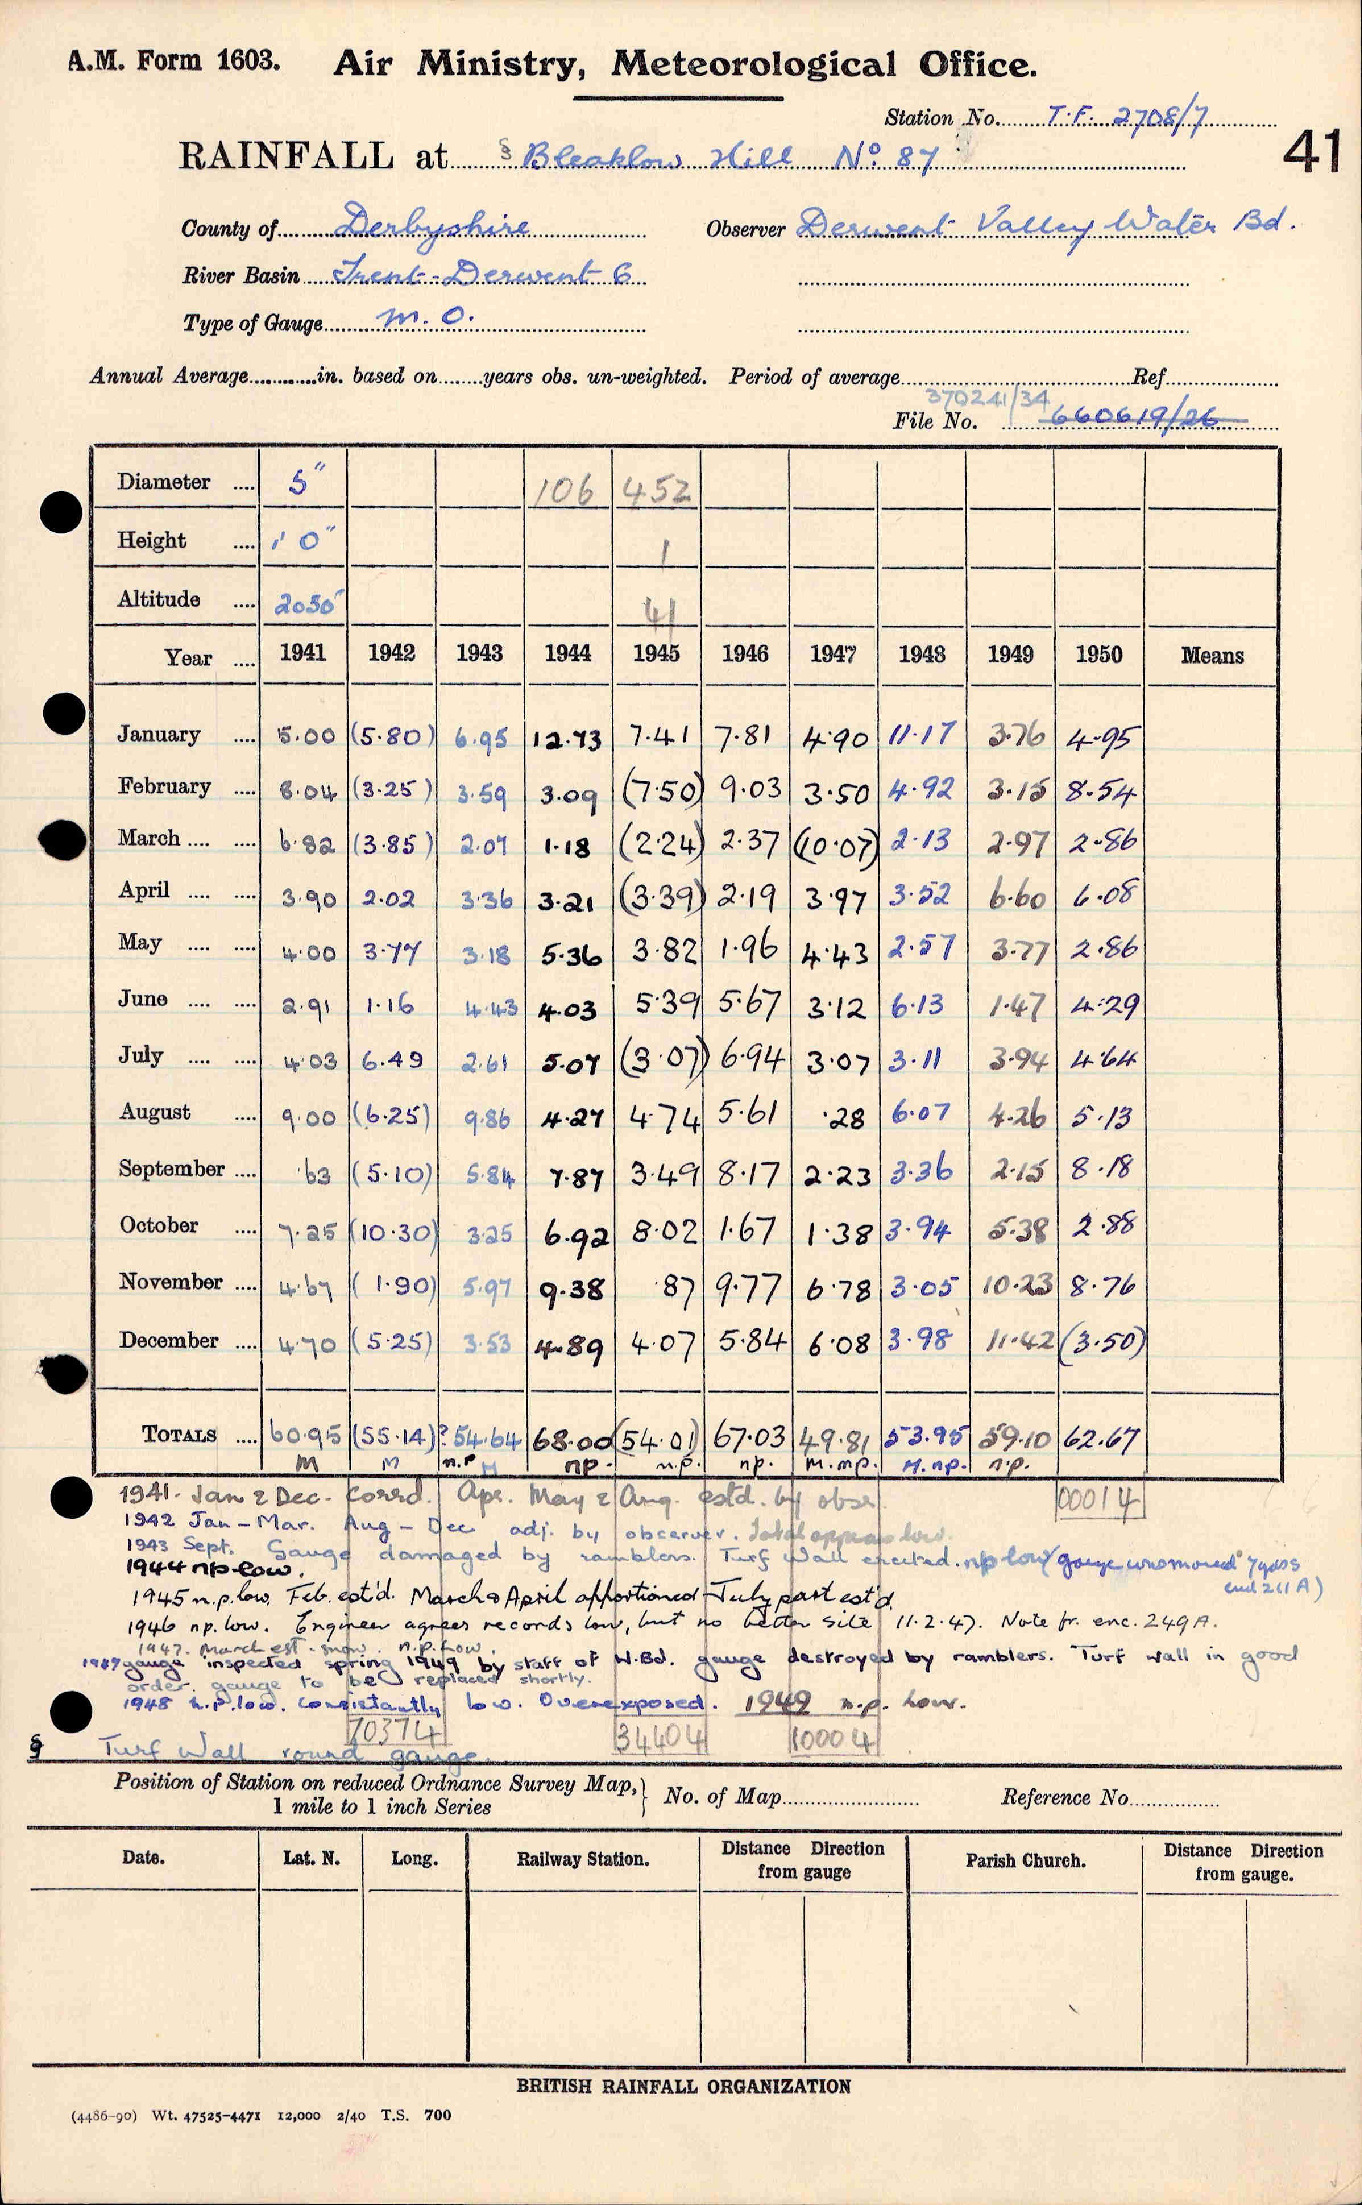 A.M. Form 1603. Air Ministry, Meteorological Office.
Station No. T.F. 2708/7
RAINFALL at § Bleaklow Hill No. 87
41
County of Derbyshire Observer Derwent Valley Water Bd.
River Basin Trent-Derwent 6
Type of Gauge M.O.
Annual Average............in. based on........years obs. un-weighted. Period of average Ref
370241/34
File No. 660619/26
Diameter .... 5" 106 452
Height .... 1' 0" 1
Altitude .... 2050' 41
Year .... 1941 1942 1943 1944 1945 1946 1947 1948 1949 1950 Means
January .... 5.00 (5.80) 6.95 12.73 7.41 7.81 4.90 11.17 3.76 4.95
February .... 8.04 (3.25) 3.59 3.09 (7.50) 9.03 3.50 4.92 3.15 8.54
March .... .... 6.82 (3.85) 2.07 1.18 (2.24) 2.37 (10.07) 2.13 2.97 2.86
April .... .... 3.90 2.02 3.36 3.21 (3.39) 2.19 3.97 3.52 6.60 6.08
May .... .... 4.00 3.77 3.18 5.36 3.82 1.96 4.43 2.57 3.77 2.86
June .... .... 2.91 1.16 4.43 4.03 5.39 5.67 3.12 6.13 1.47 4.29
July .... .... 4.03 6.49 2.61 5.07 (3.07) 6.94 3.07 3.11 3.94 4.64
August .... 9.00 (6.25) 9.86 4.27 4.74 5.61 .28 6.07 4.26 5.13
September .... .63 (5.10) 5.84 7.87 3.49 8.17 2.23 3.36 2.15 8.18
October .... 7.25 (10.30) 3.25 6.92 8.02 1.67 1.38 3.94 5.38 2.88
November .... 4.67 (1.90) 5.97 9.38 .87 9.77 6.78 3.05 10.23 8.76
December .... 4.70 (5.25) 3.53 4.89 4.07 5.84 6.08 3.98 11.42 (3.50)
TOTALS .... 60.95 (55.14) ?54.64 68.00 (54.01) 67.03 49.81 53.95 59.10 62.67
M M n.p M np. n.p. np. M.mp. M.np. n.p.
1941. Jan & Dec. corrd. Apr. May & Aug. estd. by obsr. 00014
1942 Jan – Mar. Aug – Dec adj. by observer. Total appears low.
1943 Sept. Gauge damaged by ramblers. Turf Wall erected. np low (gauge was moved 7 yards
encl 211A)
1944 np low.
1945 n.p. low. Feb. est'd. March & April apportioned July part est'd.
1946 np. low. Engineer agrees records low, but no better site 11.2.47. Note fr. enc. 249A.
1947. March est. snow. n.p. low.
1947 gauge inspected spring 1949 by staff of W.Bd. gauge destroyed by ramblers. Turf wall in good
order. gauge to be replaced shortly.
1948 n.p. low. consistantly low. Overexposed. 1949 n.p. low.
70374 34404 10004
§ Turf Wall round gauge.
Position of Station on reduced Ordnance Survey Map, } No. of Map Reference No.
1 mile to 1 inch Series
Date. Lat. N. Long. Railway Station. Distance Direction from gauge Parish Church. Distance Direction from gauge.
BRITISH RAINFALL ORGANIZATION
(4486-90) Wt. 47525-4471 12,000 2/40 T.S. 700